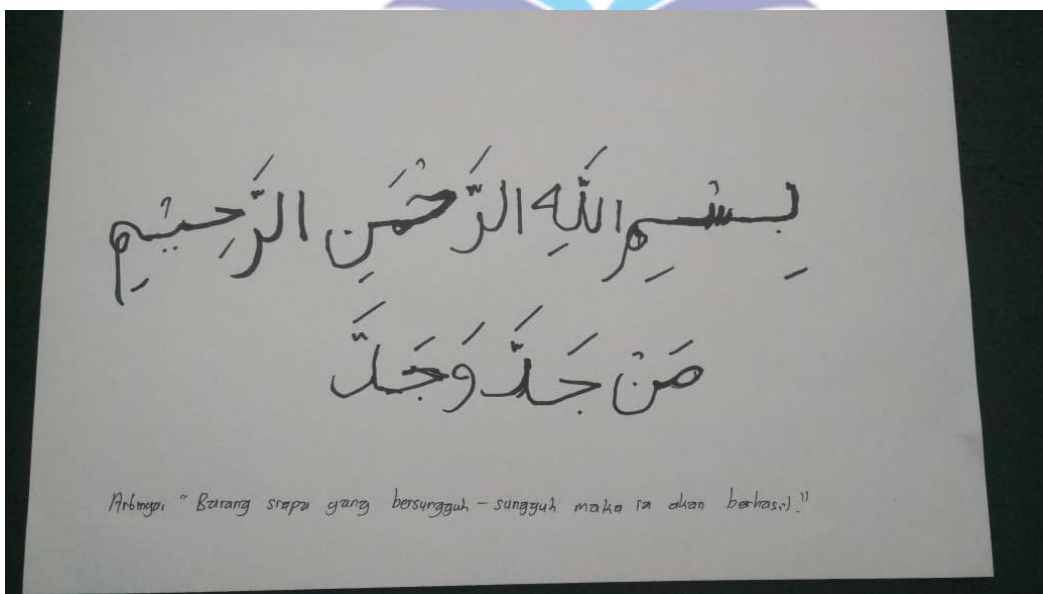 بِسْمِ اللَّهِ الرَّحْمَنِ الرَّحِيْمِ
مَنْ جَدَّ وَجَدَّ
Artinya, "Barang siapa yang bersungguh - sungguh maka ia akan berhasil."